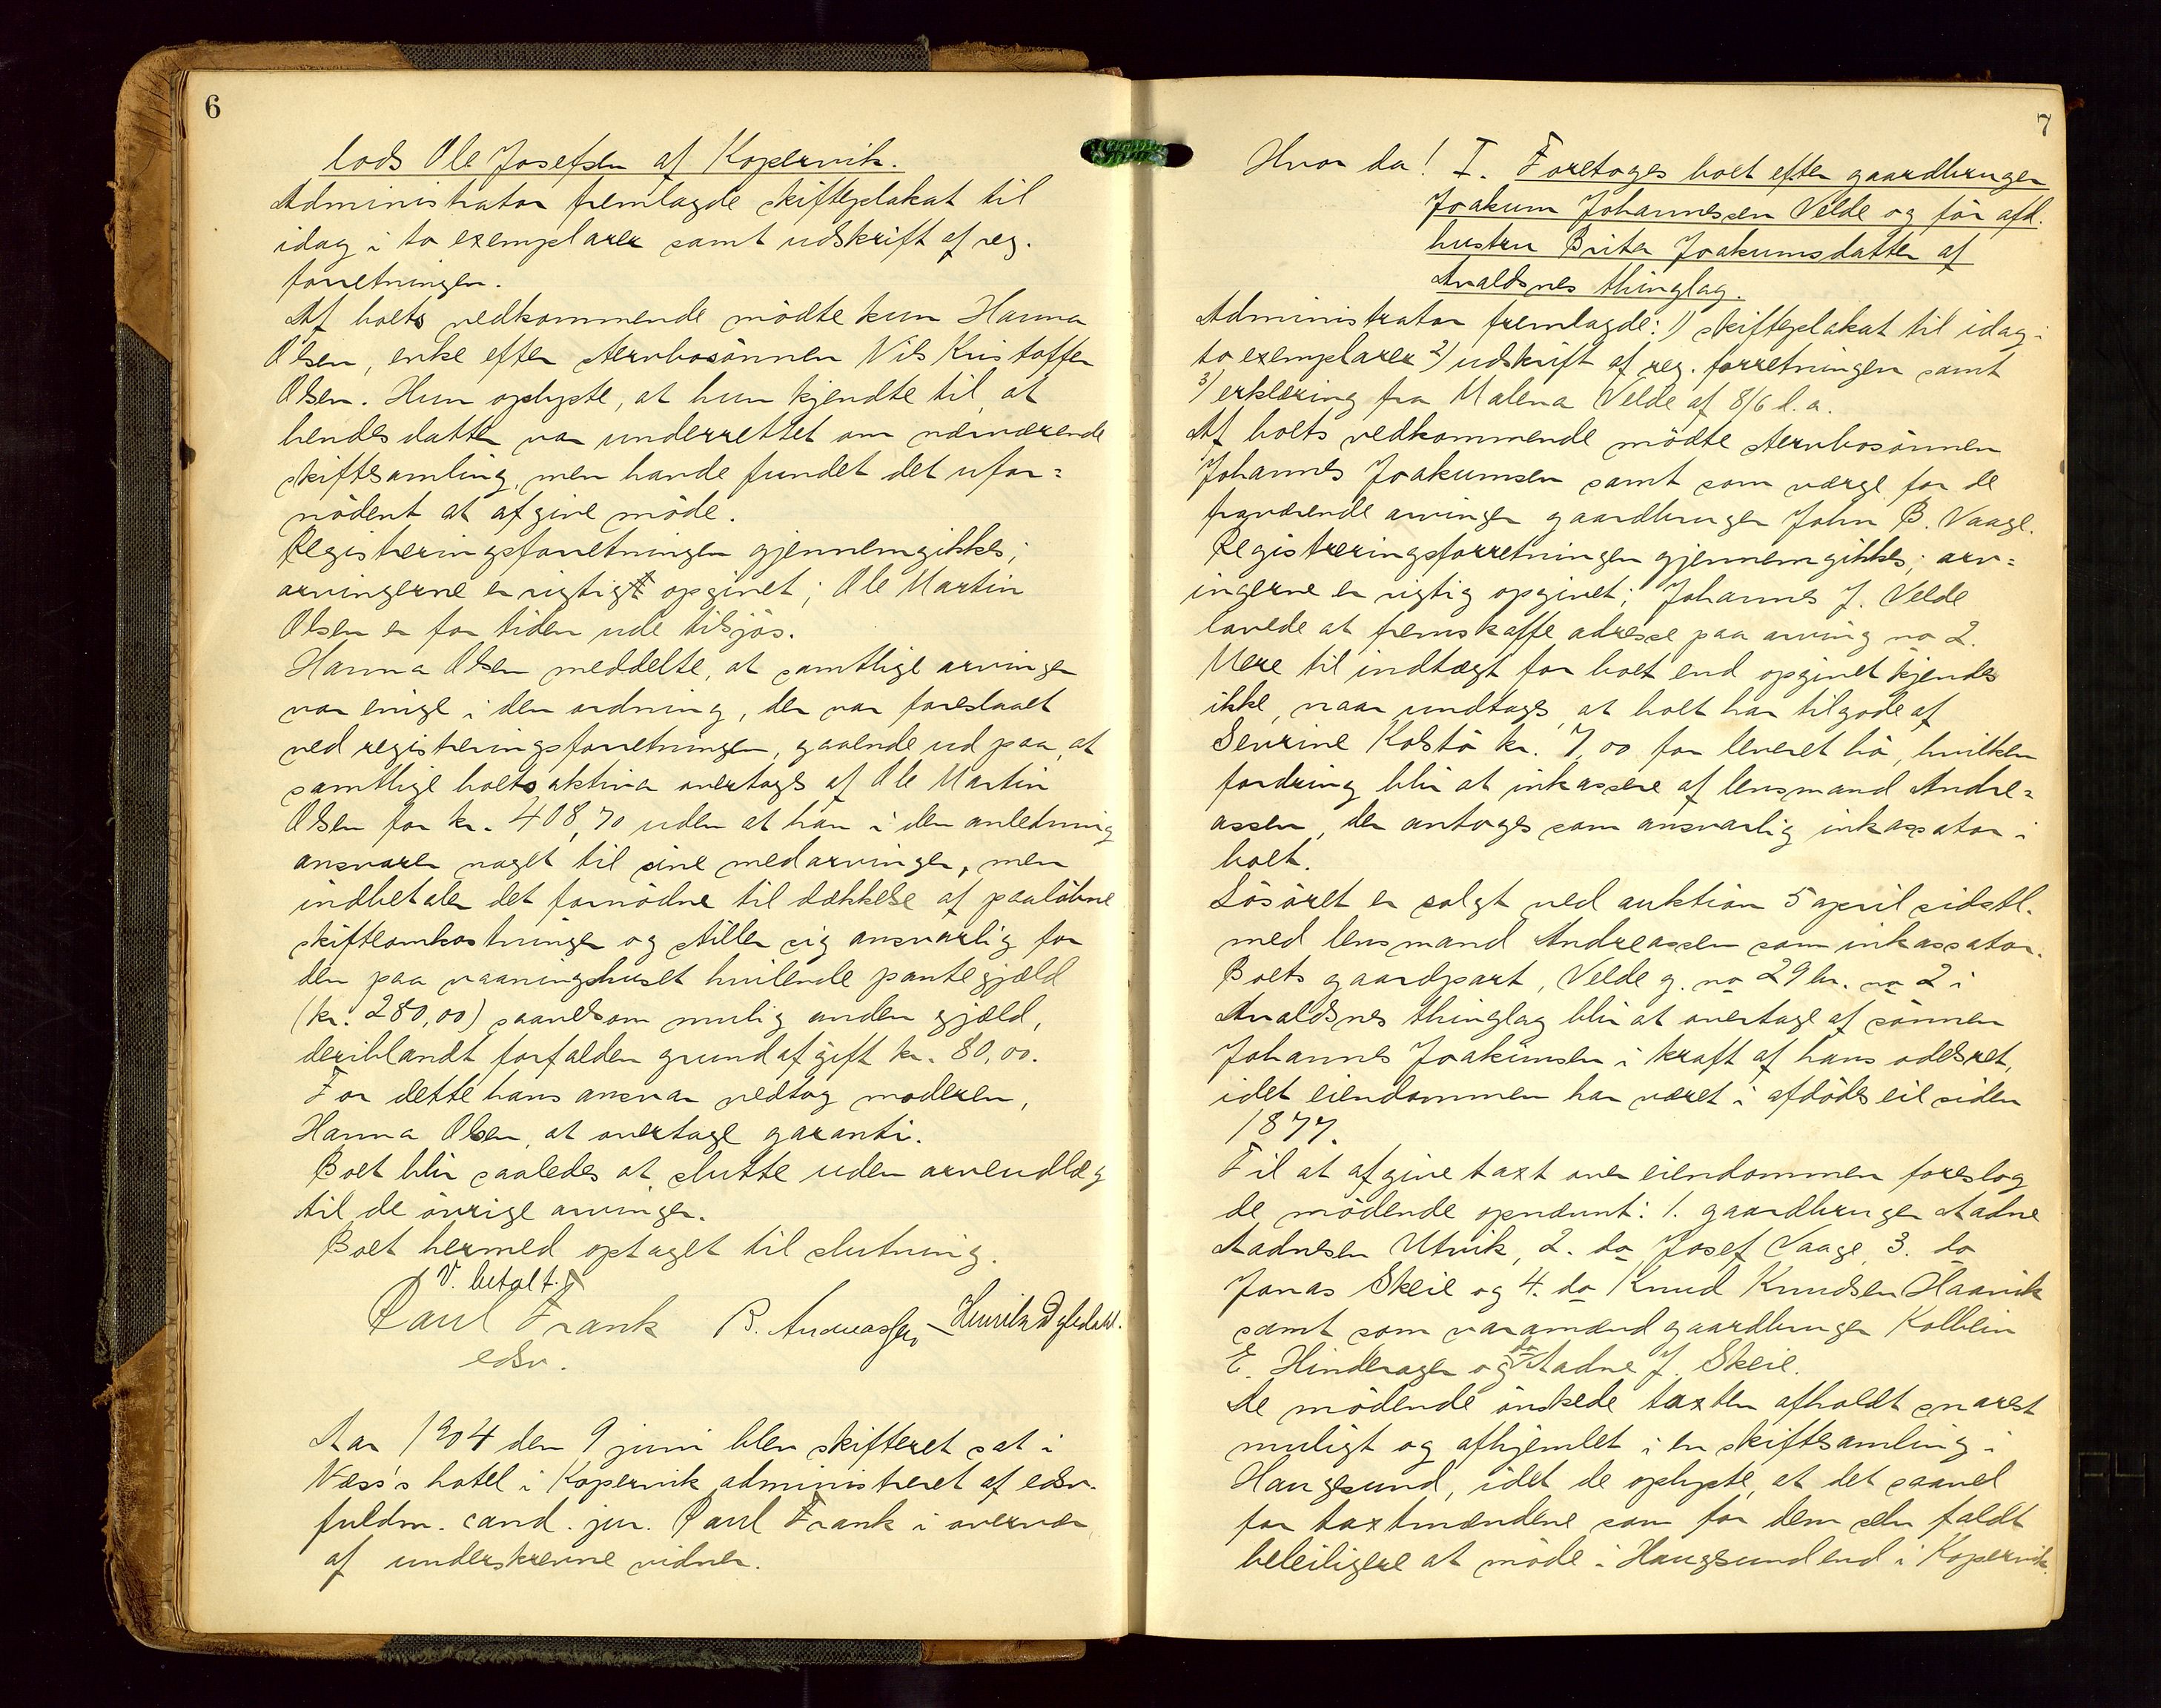 6
lods Ole Josefsen af Kopervik.
Administrator fremlagde skifteplakat til
idag i to exemplarer samt udskrift af reg.
forretningen.
Af boets vedkommende mödte kun Hanna
Olsen, enke efter stervbosönnen Nils Kristoffer
Olsen. Hun oplyste, at hun kjendte til, at
hendes datter var underrettet om nærværende
skiftesamling, men havde fundet det ufor=
nödent at afgive möde.
Registreringsforretningen gjennemgikkes;
arvingerne er rigtigt opgivet; Ole Martin
Olsen er for tiden ude tilsjös.
Hanna Olsen meddelte, at samtlige arvinger
var enige i den ordning, der var foreslaaet
ved registreringsforretningen, gaaende ud paa, at
samtlige boets aktiva overtages af Ole Martin
Olsen for kr. 408,70 uden at han i den anledning
ansvarer noget til sine medarvinger, men
indbetaler det fornödne til dækkelse af paalöbne
skifteomkostninger og stiller sig ansvarlig for
den paa vaaningshuset hvilende pantegjæld
(kr. 280,00) saavelsom mulig anden gjæld,
deriblandt forfalden grundafgift kr. 80,00.
For dette hans ansvar vedtog moderen,
Hanna Olsen, at overtage garanti.
Boet blir saaledes at slutte uden arveudlæg
til de övrige arvinger.
Boet hermed optaget til slutning.
V. betalt.
Paul Frank B. Andreassen – Henrik
edsv.
Aar 1904 den 9 juni blev skifteret sat i
Næss's hotel i Kopervik administreret af edsv.
fuldm. cand. jur. Paul Frank i overvær
af underskrevne vidner.
7
Hvor da! I. Foretoges boet efter gaardbruger
Joakum Johannessen Velde og för afd.
hustru Brita Joakumsdatter af
Avaldsnes thinglag.
Administrator fremlagde: 1) skifteplakat til idag i
to exemplarer 2) udskrift af reg. forretningen samt
3) erklæring fra Malena Velde af 8/6 d. a.
Af boets vedkommende mödte stervbosönnen
Johannes Joakumsen samt som værge for de
fraværende arvinger gaardbruger John B. Vaage.
Registreringsforretningen gjennemgikkes; arv=
ingerne er rigtig opgivet; Johannes J. Velde
lovede at fremskaffe adresse paa arving no 2.
Mere til indtægt for boet end opgivet kjendes
ikke, naar undtages, at boet har tilgode af
Sevrine Kolstö kr. 7,00 for leveret hö, hvilken
fordring blir at inkassere af lensmand Andre=
assen, der antoges som ansvarlig inkassator i
boet.
Lösöret er solgt ved auktion 5 april sidstl.
med lensmand Andreassen som inkassator.
Boets gaardpart, Velde g. no 29 br. no 2 i
Avaldsnes thinglag blir at overtage af sönnen
Johannes Joakimsen i kraft af hans odelsret,
idet eiendommen har været i afdödes eie siden
1877.
Til at afgive taxt over eiendommen foreslog
de mödende opnævnt: 1. gaardbruger Aadne
Aadnesen Utvik, 2. do Josef Vaage, 3. do
Jonas Skeie og 4. do Knud Knudsen Haavik
samt som varamænd gaardbruger Kolbein
E. Hinderager og do Aadne J. Skeie.
De mödende önskede taxten afholdt snarest
muligt og afhjemlet i en skiftesamling i
Haugesund, idet de oplyste, at det saavel
for taxtmændene som for dem selv faldt
beleiligere at möde i Haugesund end i Kopervik.